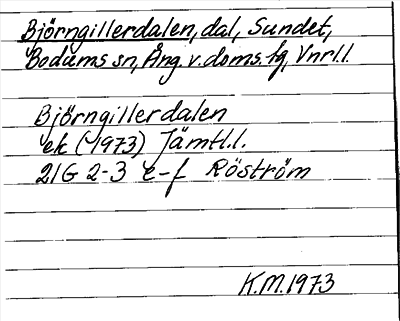 Björngillerdalen, dal, Sundet,
Bodums sn, Ång. v. doms.tg, Vnrl.l.
Björngillerdalen
ek (1973) Jämtl.l.
21G 2-3 e-f Röström
K.M. 1973